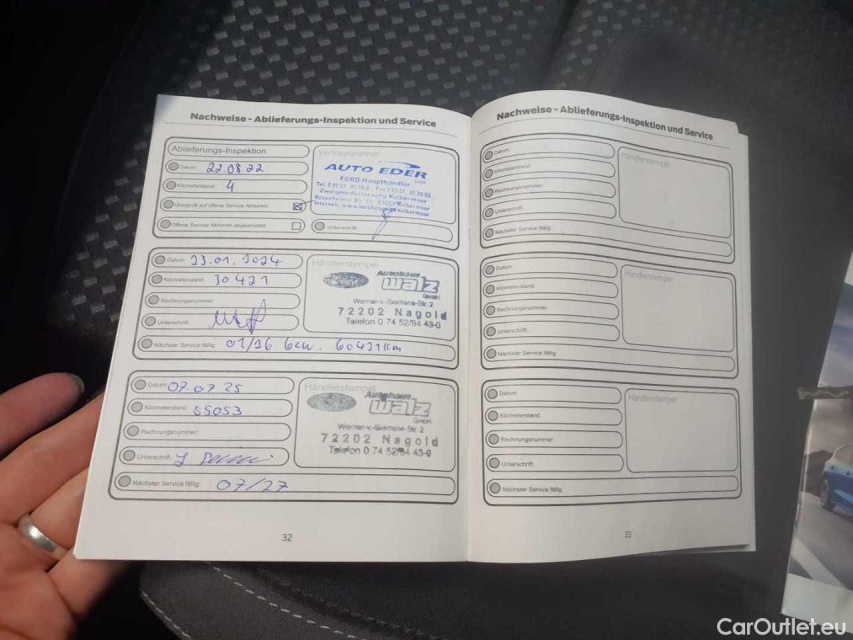 Nachweise - Ablieferungs-Inspektion und Service
Ablieferungs-Inspektion
Datum 22.08.22
Kilometerstand 4
Überprüft auf offene Service Aktionen
Offene Service Aktionen abgearbeitet
Vertragspartner
AUTO EDER
FORD-Haupthändler
Kolbermoor
Unterschrift
Datum 23.01.2024
Kilometerstand 30421
Rechnungsnummer
Unterschrift
Nächster Service fällig 01/26 bzw. 60421km
Händlerstempel
Ford
Autohaus
Walz
GmbH
Werner-v.-Siemens-Str. 2
72202 Nagold
Telefon 0 74 52/84 43-0
Datum 07.07.25
Kilometerstand 55053
Rechnungsnummer
Unterschrift
Nächster Service fällig 07/27
Händlerstempel
Autohaus
Walz
GmbH
Werner-v.-Siemens-Str. 2
72202 Nagold
Telefon 0 74 52/84 43-0
32
Nachweise - Ablieferungs-Inspektion und Service
Datum
Kilometerstand
Rechnungsnummer
Unterschrift
Nächster Service fällig
Händlerstempel
Datum
Kilometerstand
Rechnungsnummer
Unterschrift
Nächster Service fällig
Händlerstempel
Datum
Kilometerstand
Rechnungsnummer
Unterschrift
Nächster Service fällig
Händlerstempel
33
CarOutlet.eu